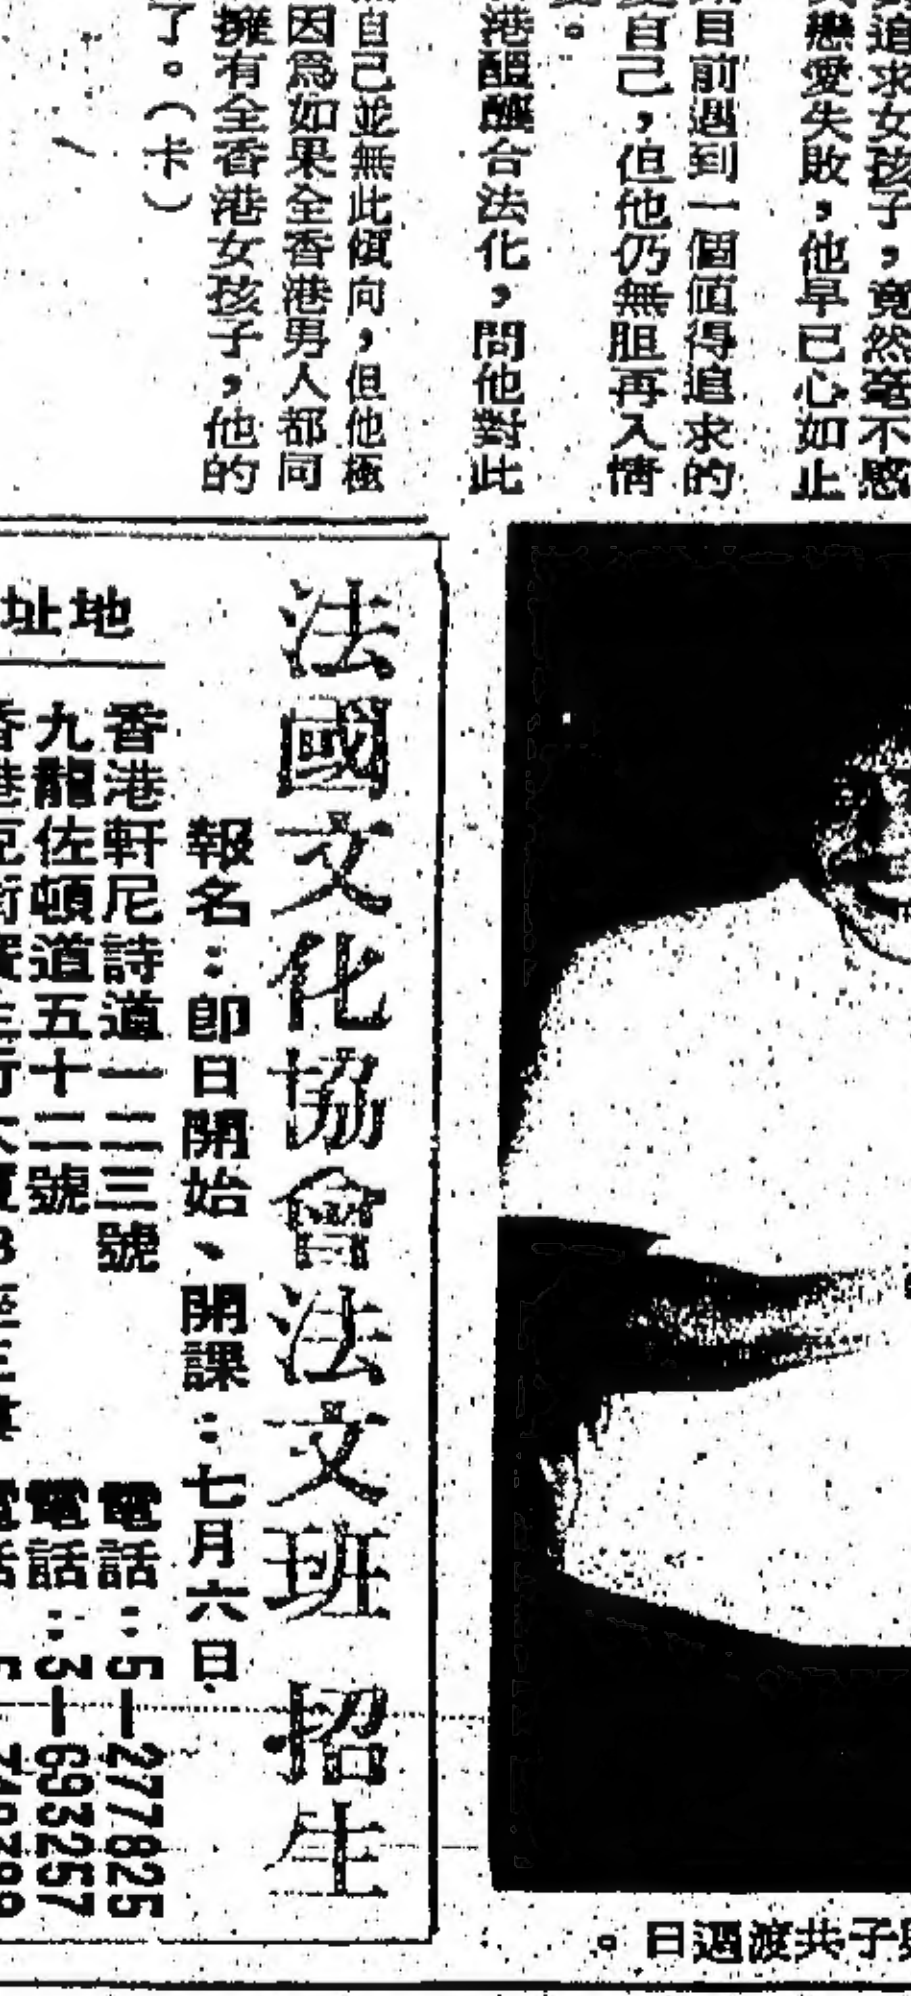 追求女孩子，竟然毫不感
戀愛失敗，他早已心如止
目前遇到一個值得追求的
自己，但他仍無胆再入情
。
港醞釀合法化，問他對此
自己並無此傾向，但他極
因爲如果全香港男人都同
擁有全香港女孩子，他的
了。（卡）
子共渡週日。
法國文化協會法文班 招生
報名：即日開始、開課：七月六日
地址
香港軒尼詩道一二三號 電話：5—277825
九龍佐頓道五十二號 電話：3—693257